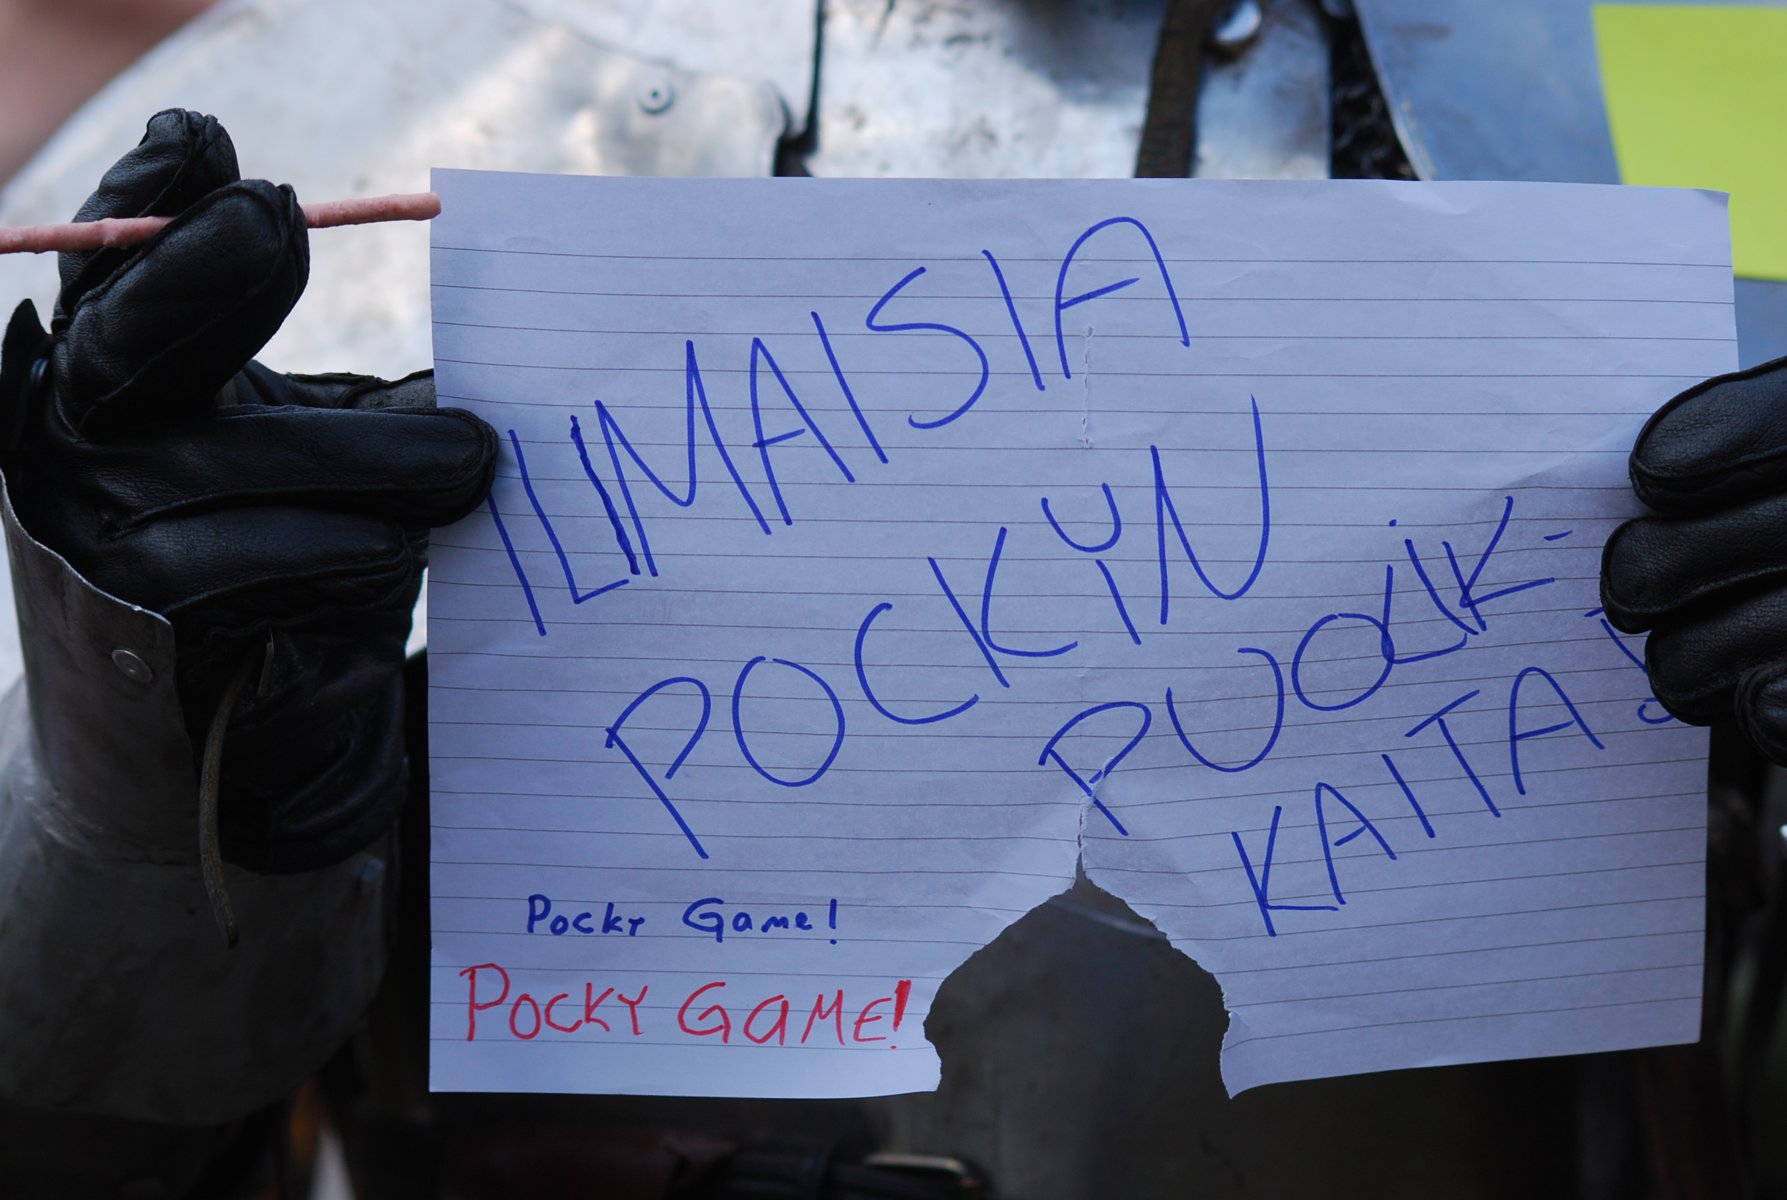 ILMAISIA
POCKYN
PUOLIK-
KAITA!
Pocky Game!
POCKY GAME!